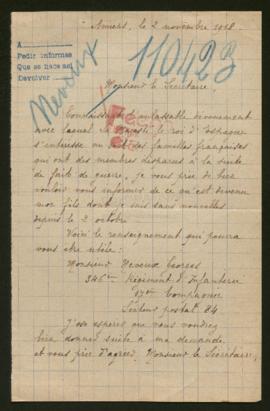 Amiens, le 2 novembre 1918
A
Pedir informes
Que se hace saber
Devolver
110423
Neveux
Monsieur le Secrétaire,
Connaissant l'inlassable dévouement
avec lequel sa Majesté le roi d'Espagne
s'intéresse au sort des familles françaises
qui ont des membres disparus à la suite
de faits de guerre, je vous prie de bien
vouloir vous informer de ce qu'est devenu
mon fils dont je suis sans nouvelles
depuis le 2 octobre
Voici le renseignement qui pourra
vous être utile:
Monsieur Neveux Georges
346eme Régiment d'Infanterie
17eme Compagnie
Secteur postal 84
J'ose espérer que vous voudrez
bien donner suite à ma demande
et vous prie d'agréer, Monsieur le Secrétaire,